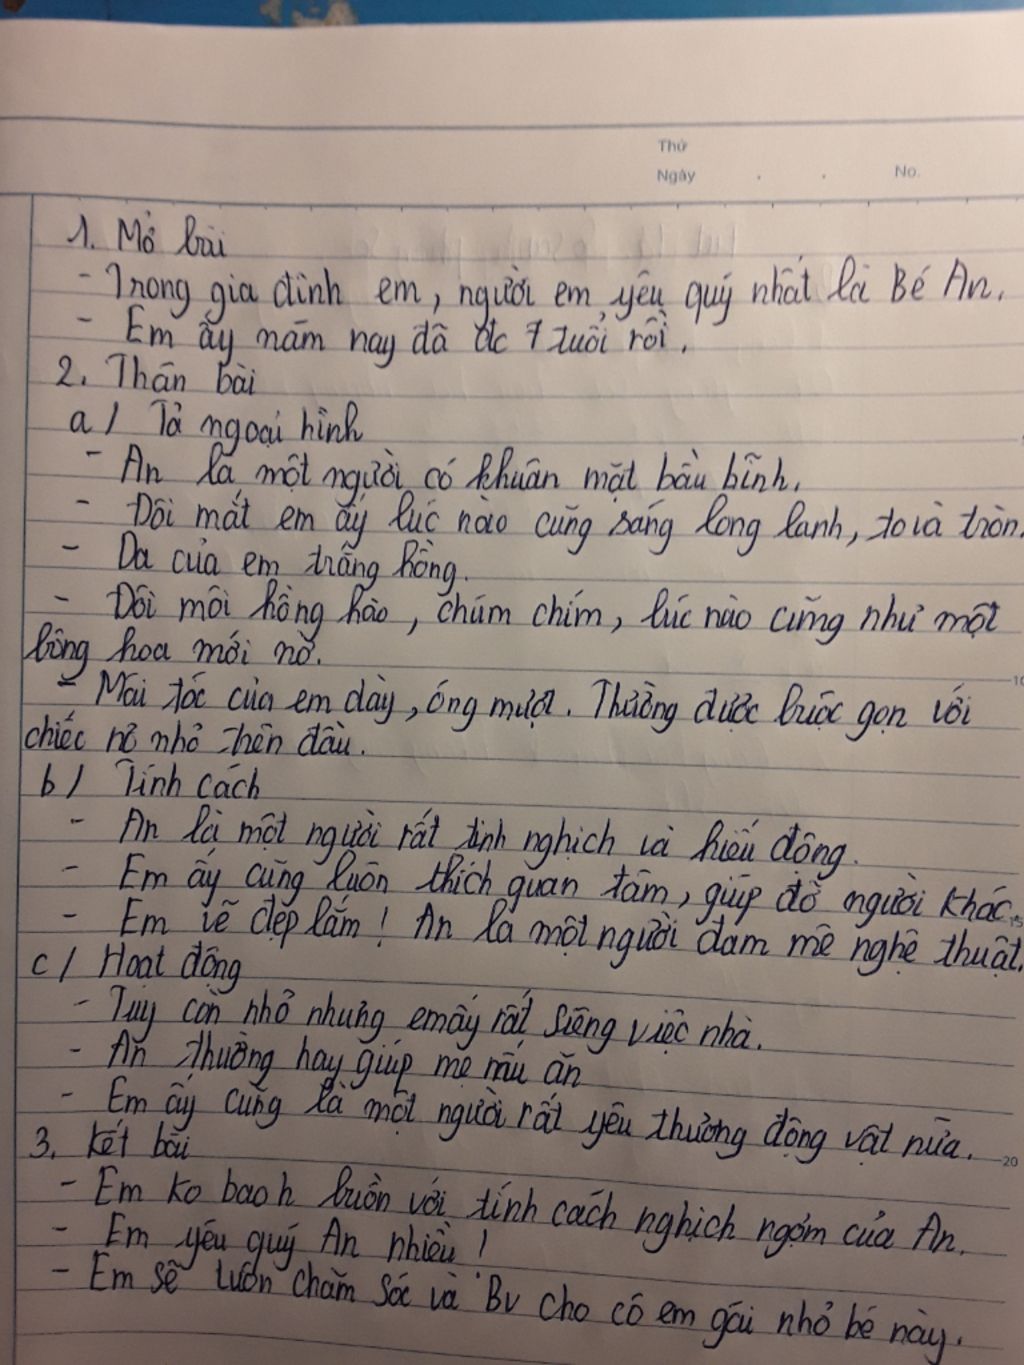 Thứ
Ngày . . No.
1. Mở bài
- Trong gia đình em, người em yêu quý nhất là Bé An.
- Em ấy năm nay đã đc 7 tuổi rồi.
2. Thân bài
a / Tả ngoại hình
- An là một người có khuân mặt bầu bĩnh.
- Đôi mắt em ấy lúc nào cũng sáng long lanh, to và tròn.
- Da của em trắng hồng.
- Đôi môi hồng hào, chúm chím, lúc nào cũng như một
bông hoa mới nở.
- Mái tóc của em dày, óng mượt. Thường được buộc gọn với
chiếc nơ nhỏ trên đầu.
b / Tính cách
- An là một người rất tinh nghịch và hiếu động.
- Em ấy cũng luôn thích quan tâm, giúp đỡ người khác.
15
- Em vẽ đẹp lắm ! An là một người đam mê nghệ thuật.
c / Hoạt động
- Tuy còn nhỏ nhưng em ấy rất siêng việc nhà.
- An thường hay giúp mẹ nấu ăn
- Em ấy cũng là một người rất yêu thương động vật nữa.
20
3. Kết bài
- Em ko bao h buồn với tính cách nghịch ngợm của An.
- Em yêu quý An nhiều !
- Em sẽ luôn chăm sóc và Bv cho cô em gái nhỏ bé này.